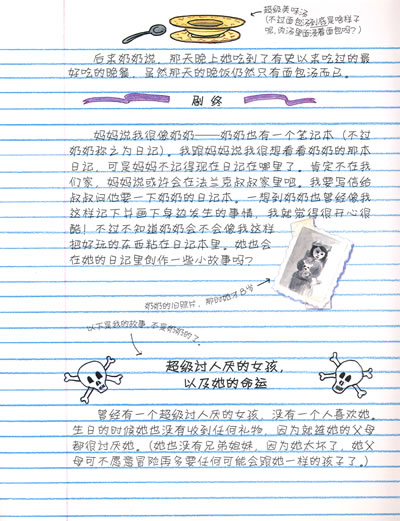 超级美味汤
(不过面包汤到底是啥样子
呢,肉汤里面漂着面包吗?)
后来奶奶说,那天晚上她吃到了有史以来吃过的最
好吃的晚餐,虽然那天的晚饭仍然只有面包汤而已。
剧终
妈妈说我很像奶奶——奶奶也有一个笔记本(不过
奶奶称之为日记)。我跟妈妈说我很想看看奶奶的那本
日记,可是妈妈不记得现在日记在哪里了。肯定不在我
们家,妈妈说或许会在法兰克叔叔家里吧。我要写信给
叔叔问他要一下奶奶的日记本。一想到奶奶也曾经像我
这样记下并画下身边发生的事情,我就觉得很开心很
酷!不过不知道奶奶会不会像我这样
把好玩的东西粘在日记本里。她也会
在她的日记里创作一些小故事吗?
奶奶的旧照片,那时她才8岁
以下是我的故事,不是奶奶的了。
超级讨人厌的女孩,
以及她的命运
曾经有一个超级讨人厌的女孩,没有一个人喜欢她。
生日的时候她也没有收到任何礼物,因为就连她的父母
都很讨厌她。(她也没有兄弟姐妹,因为她太坏了,她父
母可不愿意冒险再多要任何可能会跟她一样的孩子了。)